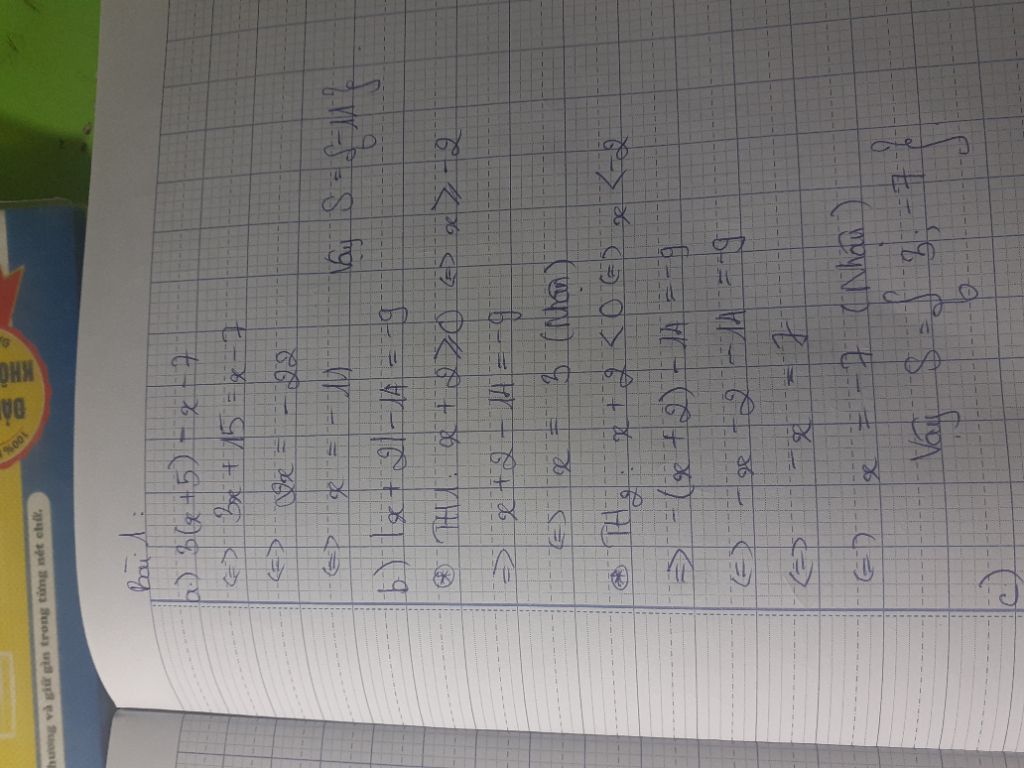 Bài 1:
a) 3(x+5) = x - 7
<=> 3x + 15 = x - 7
<=> 2x = -22
<=> x = -11 Vậy S = {-11}
b) |x + 2| - 14 = -9
⊛ TH1: x + 2 ≥ 0 <=> x ≥ -2
=> x + 2 - 14 = -9
<=> x = 3 (Nhận)
⊛ TH2: x + 2 < 0 <=> x < -2
=> -(x + 2) - 14 = -9
<=> -x - 2 - 14 = -9
<=> -x = 7
<=> x = -7 (Nhận)
Vậy S = { 3; -7 }
c)
100%
hương và giữ gìn trong từng nét chữ.